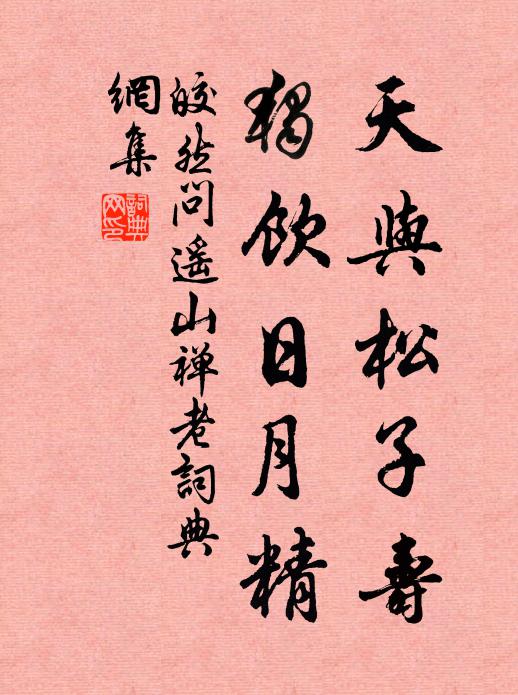 天與松子壽
獨飲日月精
皎然問遥山禅老詞典
網集
詞典網印